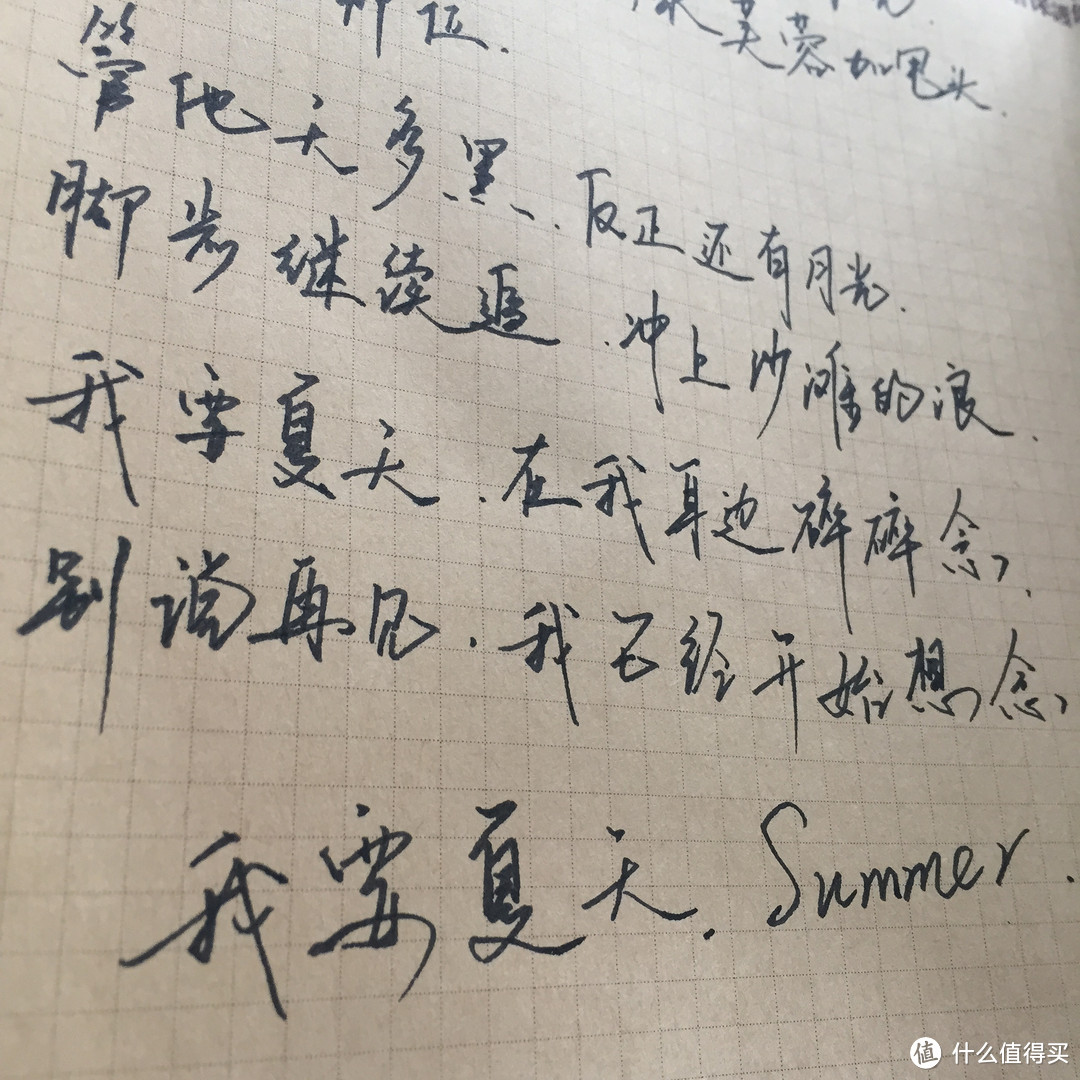 芙蓉加甩头.
管他天多黑、反正还有月光.
脚步继续追.冲上沙滩的浪.
我要夏天.在我耳边碎碎念.
别说再见.我已经开始想念
我要夏天.Summer.
值 什么值得买